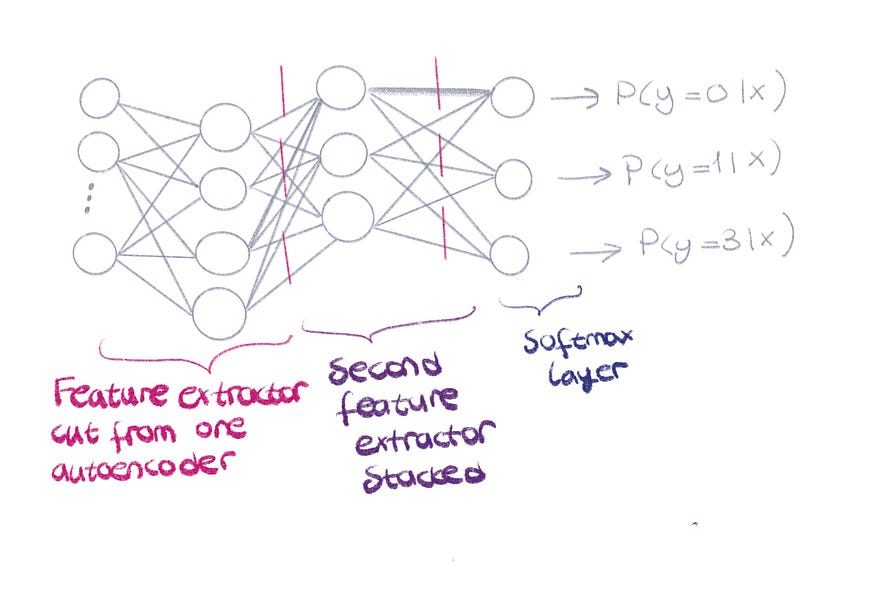 P(y=0|x)
P(y=1|x)
P(y=3|x)
Feature extractor
cut from one
autoencoder
Second
feature
extractor
Stacked
Softmax
layer